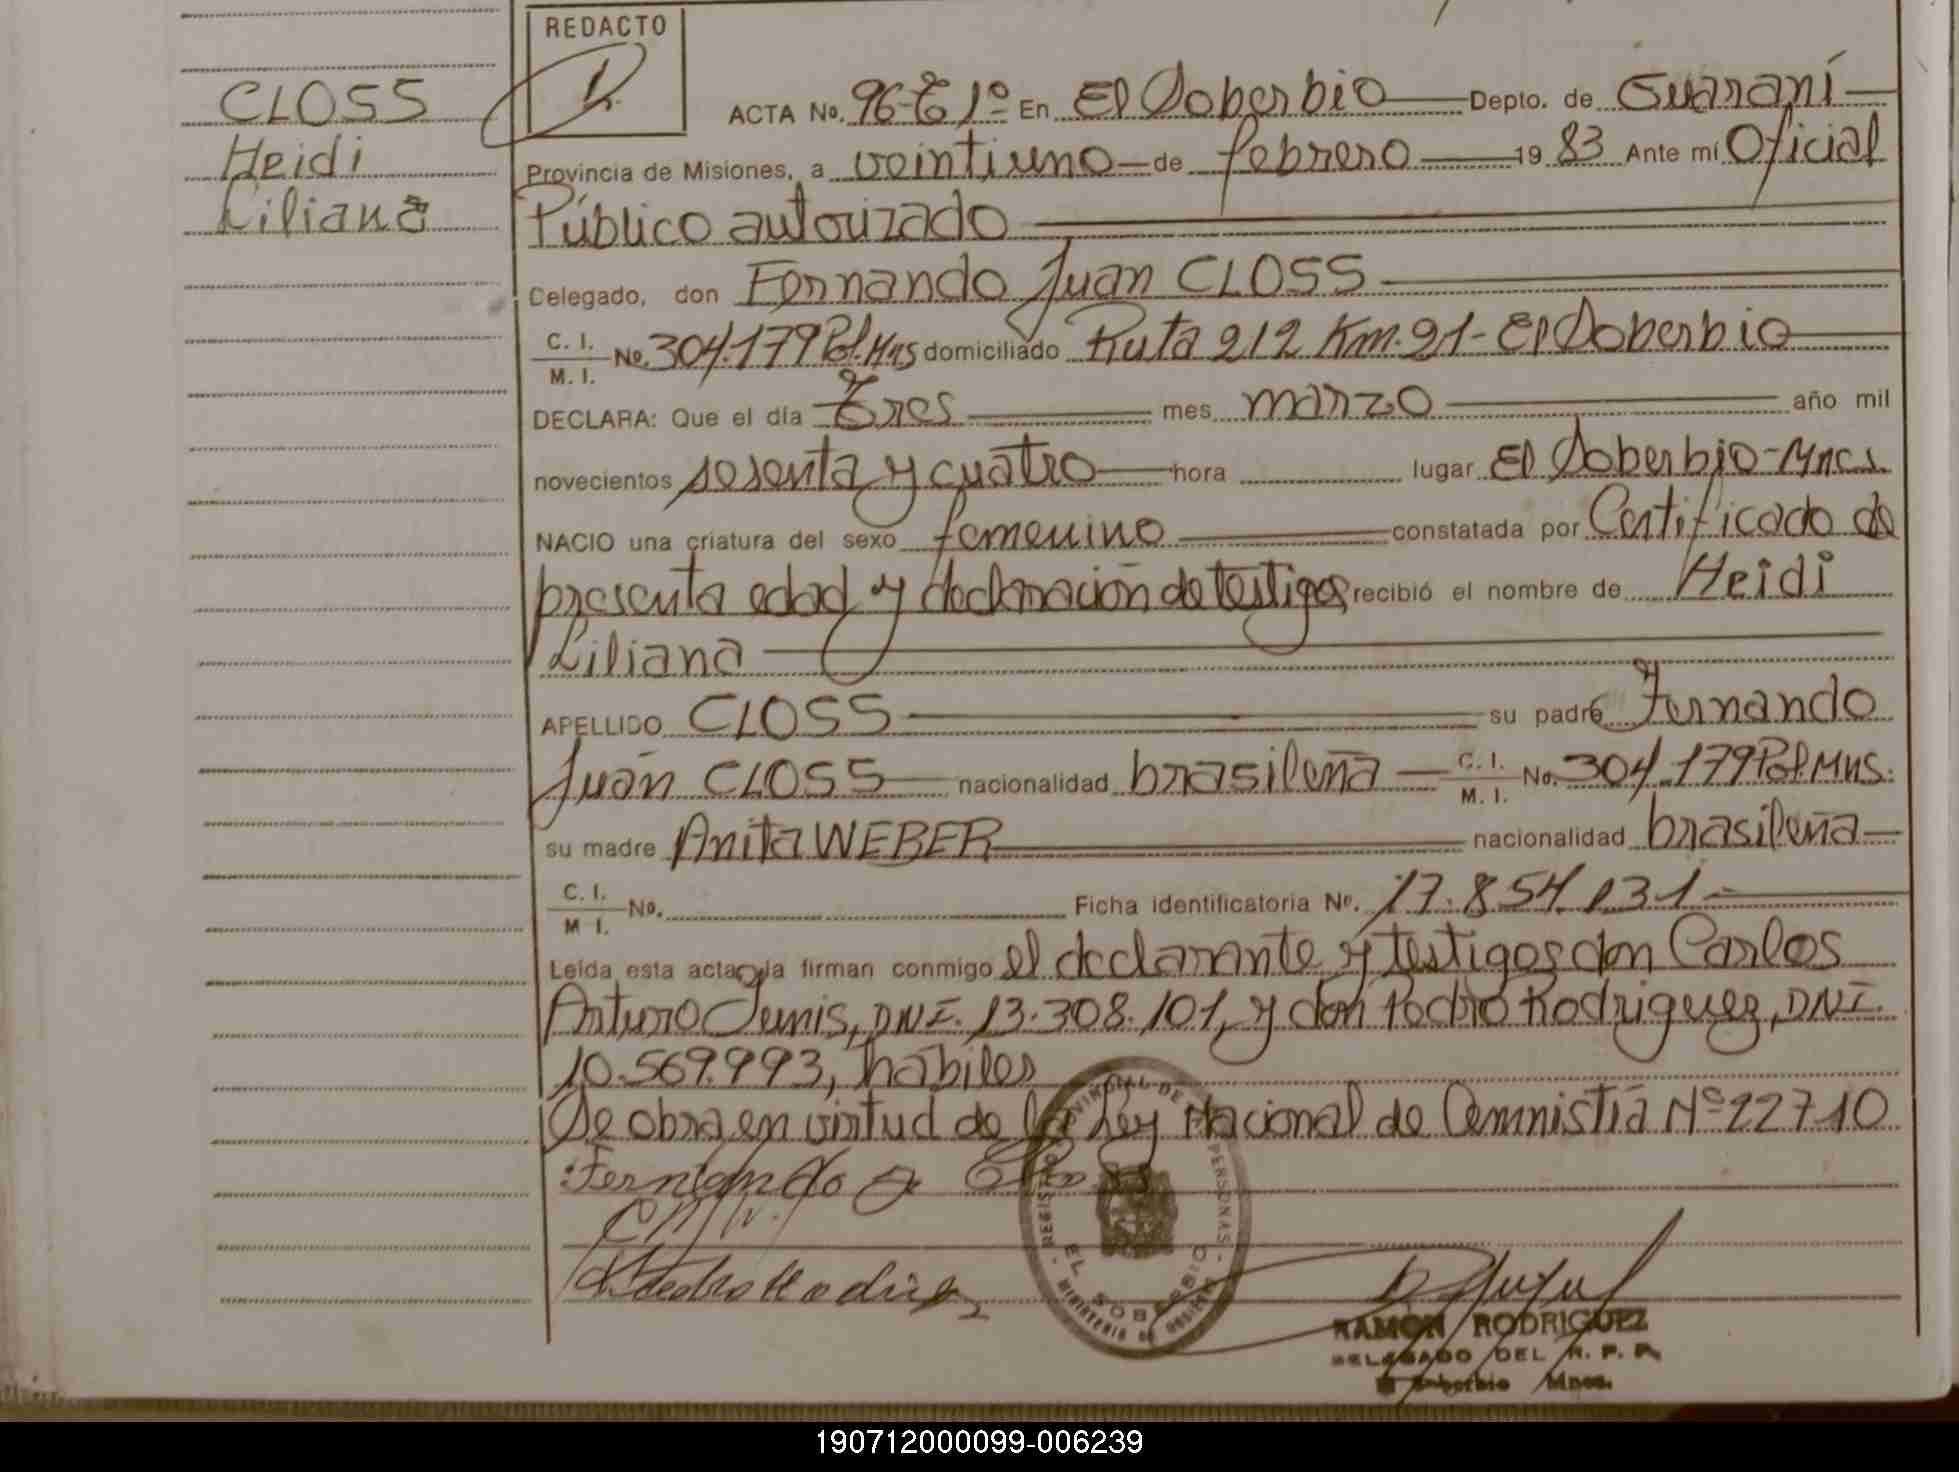 CLOSS
Heidi
Liliana
REDACTO
ACTA No. 96-T 1º En El Soberbio Depto. de Guaraní
Provincia de Misiones, a veintiuno de febrero 19 83 Ante mí Oficial
Público autorizado
Delegado, don Fernando Juan CLOSS
C. I. / M. I. No. 304.179 Pol. Mns domiciliado Ruta 212 Km. 21 - El Soberbio
DECLARA: Que el día Tres mes marzo año mil
novecientos sesenta y cuatro hora lugar El Soberbio - Mnes
NACIO una criatura del sexo femenino constatada por Certificado de
presenta edad y declaración de testigos recibió el nombre de Heidi
Liliana
APELLIDO CLOSS su padre Fernando
Juan CLOSS nacionalidad brasileña C. I. / M. I. No. 304.179 Pol. Mns.
su madre Anita WEBER nacionalidad brasileña
C. I. / M I. No. Ficha identificatoria Nº. 17.854.131
Leída esta acta, la firman conmigo el declarante y testigos don Carlos
Arturo DNI. 13.308.101, y don Pedro Rodriguez, DNI.
10.569.993, hábiles
Se obra en virtud de la Ley Nacional de Amnistía Nº 22710
Fernando J. Closs
Pedro Rodriguez
REGISTRO PROVINCIAL DE PERSONAS - MINISTERIO DE GOBIERNO
EL SOBERBIO
RAMON RODRIGUEZ
DELEGADO DEL R. P. P.
El Soberbio Mnes.
190712000099-006239